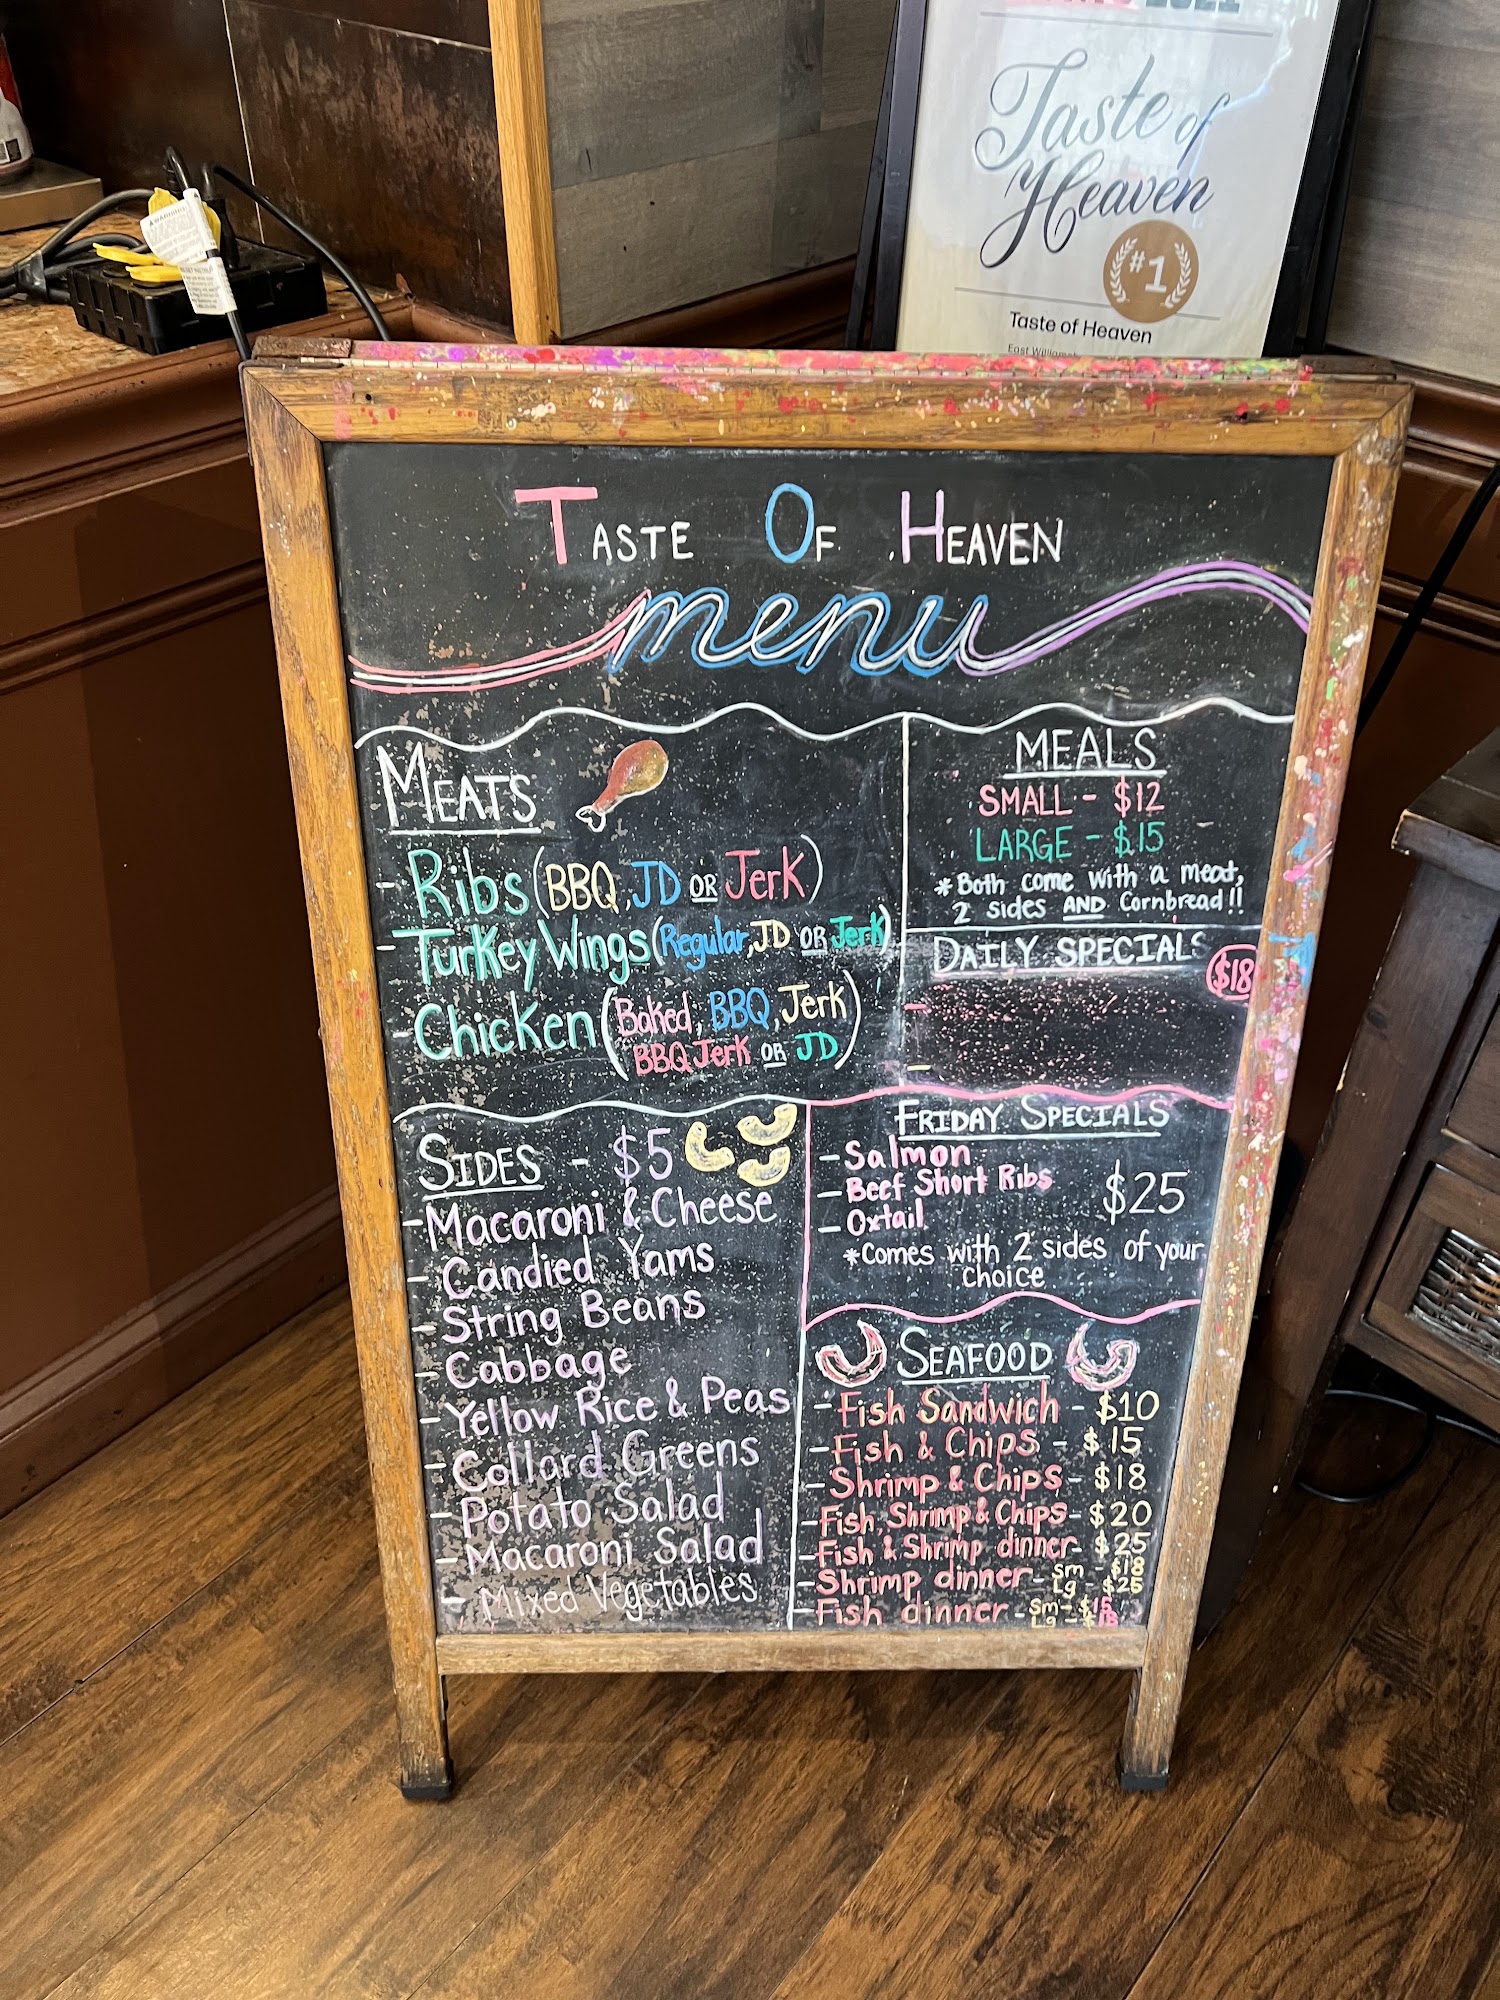 2021
Taste of
Heaven
#1
Taste of Heaven
TASTE OF HEAVEN
menu
MEATS
- Ribs (BBQ, JD OR Jerk)
- Turkey Wings (Regular, JD OR Jerk)
- Chicken (Baked, BBQ, Jerk
BBQ Jerk OR JD)
MEALS
SMALL - $12
LARGE - $15
*Both come with a meat,
2 sides AND Cornbread!!
DAILY SPECIALS
$18
-
-
SIDES - $5
- Macaroni & Cheese
- Candied Yams
- String Beans
- Cabbage
- Yellow Rice & Peas
- Collard Greens
- Potato Salad
- Macaroni Salad
- Mixed Vegetables
FRIDAY SPECIALS
- Salmon
- Beef Short Ribs
- Oxtail
$25
*Comes with 2 sides of your
choice
SEAFOOD
- Fish Sandwich - $10
- Fish & Chips - $15
- Shrimp & Chips - $18
- Fish, Shrimp & Chips - $20
- Fish & Shrimp dinner - $25
- Shrimp dinner - sm - $18
Lg - $25
- Fish dinner - sm - $15
Lg - $18